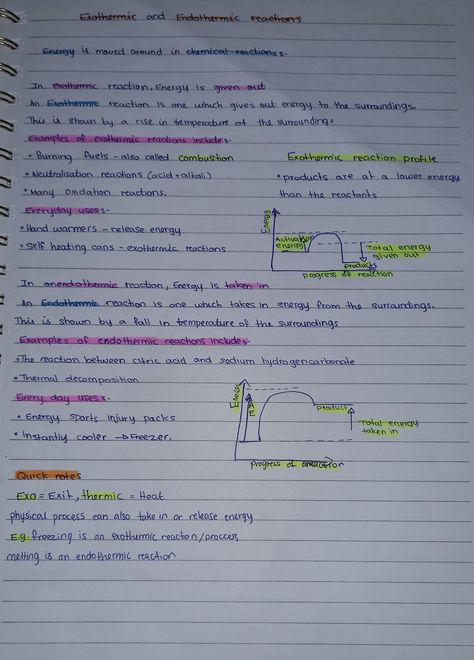 Exothermic and Endothermic reactions
Energy is moved around in chemical reactions:-
In exothermic reaction, Energy is given out
An Exothermic reaction is one which gives out energy to the surroundings.
This is shown by a rise in temperature of the surroundings
Examples of exothermic reactions include:-
• Burning fuels - also called combustion
• Neutralisation reactions (acid + alkali)
• Many oxidation reactions.
Everyday uses:-
• Hand warmers - release energy
• Self heating cans - exothermic reactions
Exothermic reaction profile
• products are at a lower energy
than the reactants
Energy
Activation
energy
Total energy
given out
products
progress of reaction
In an endothermic reaction, Energy is taken in
An Endothermic reaction is one which takes in energy from the surroundings.
This is shown by a fall in temperature of the surroundings
Examples of endothermic reactions include:-
• The reaction between citric acid and sodium hydrogencarbonate
• Thermal decomposition
Every day uses:-
• Energy sports injury packs
• Instantly cooler → Freezer.
Energy
AE
product
Total energy
taken in
progress of reaction
Quick notes
Exo = Exit, thermic = Heat
physical process can also take in or release energy
E.g. freezing is an exothermic reaction/proccess
melting is an endothermic reaction